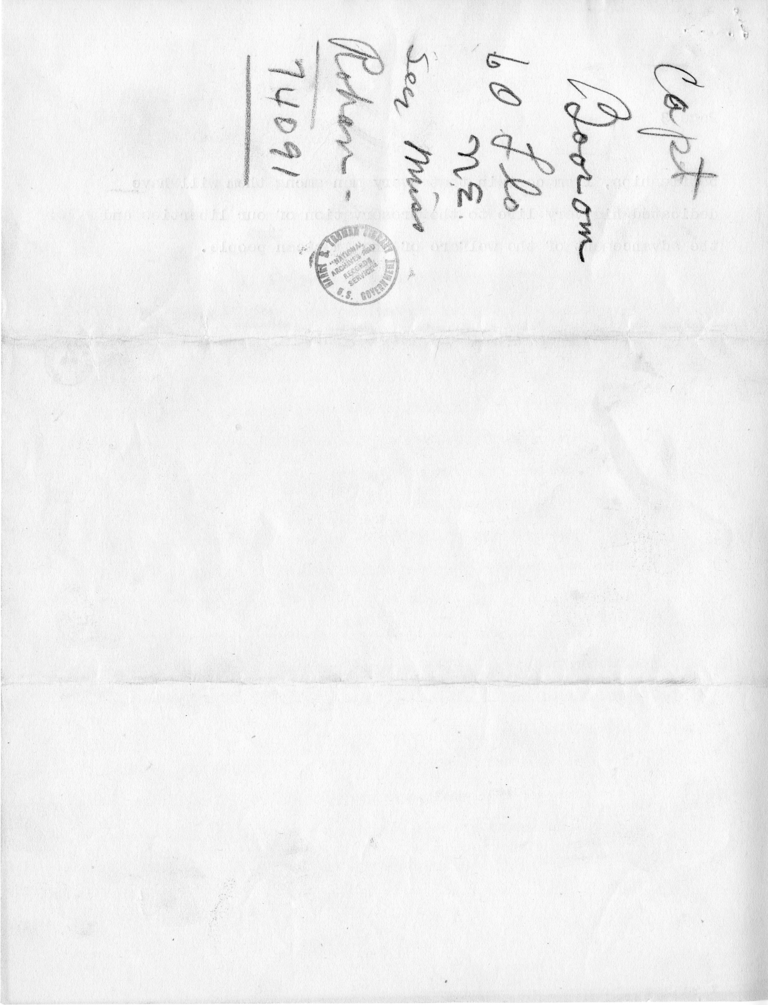 Capt
Boorom
60 Flo
N.E
See Miss
Rohan -
74091
HARRY S. TRUMAN LIBRARY
"NATIONAL
ARCHIVES AND
RECORDS
SERVICE"
U.S. GOVERNMENT